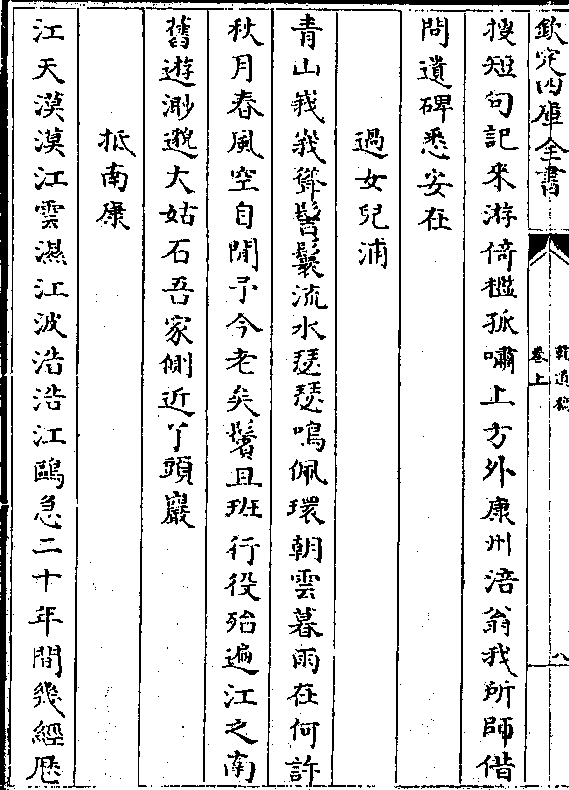 欽定四庫全書
乾道稿
卷上
八
搜短句記来游倚檻孤嘯上方外康州涪翁我所師偕
問遺碑悉安在
過女兒浦
青山峩峩聳髻鬟流水瑟瑟鳴佩環朝雲暮雨在何許
秋月春風空自閒予今老矣鬢且班行役殆遍江之南
舊遊渺邈大姑石吾家側近丫頭巖
抵南康
江天漠漠江雲濕江波浩浩江鷗急二十年間幾經歴